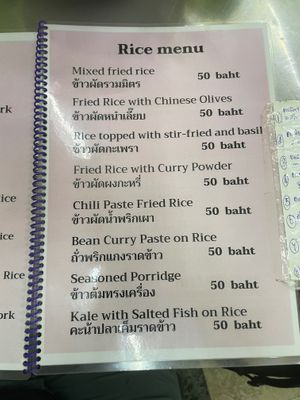 Rice menu
Mixed fried rice
ข้าวผัดรวมมิตร 50 baht
Fried Rice with Chinese Olives
ข้าวผัดหนำเลี๊ยบ 50 baht
Rice topped with stir-fried and basil
ข้าวผัดกะเพรา 50 baht
Fried Rice with Curry Powder
ข้าวผัดผงกะหรี่ 50 baht
Chili Paste Fried Rice
ข้าวผัดน้ำพริกเผา 50 baht
Bean Curry Paste on Rice
ถั่วพริกแกงราดข้าว 50 baht
Seasoned Porridge
ข้าวต้มทรงเครื่อง 50 baht
Kale with Salted Fish on Rice
คะน้าปลาเค็มราดข้าว 50 baht